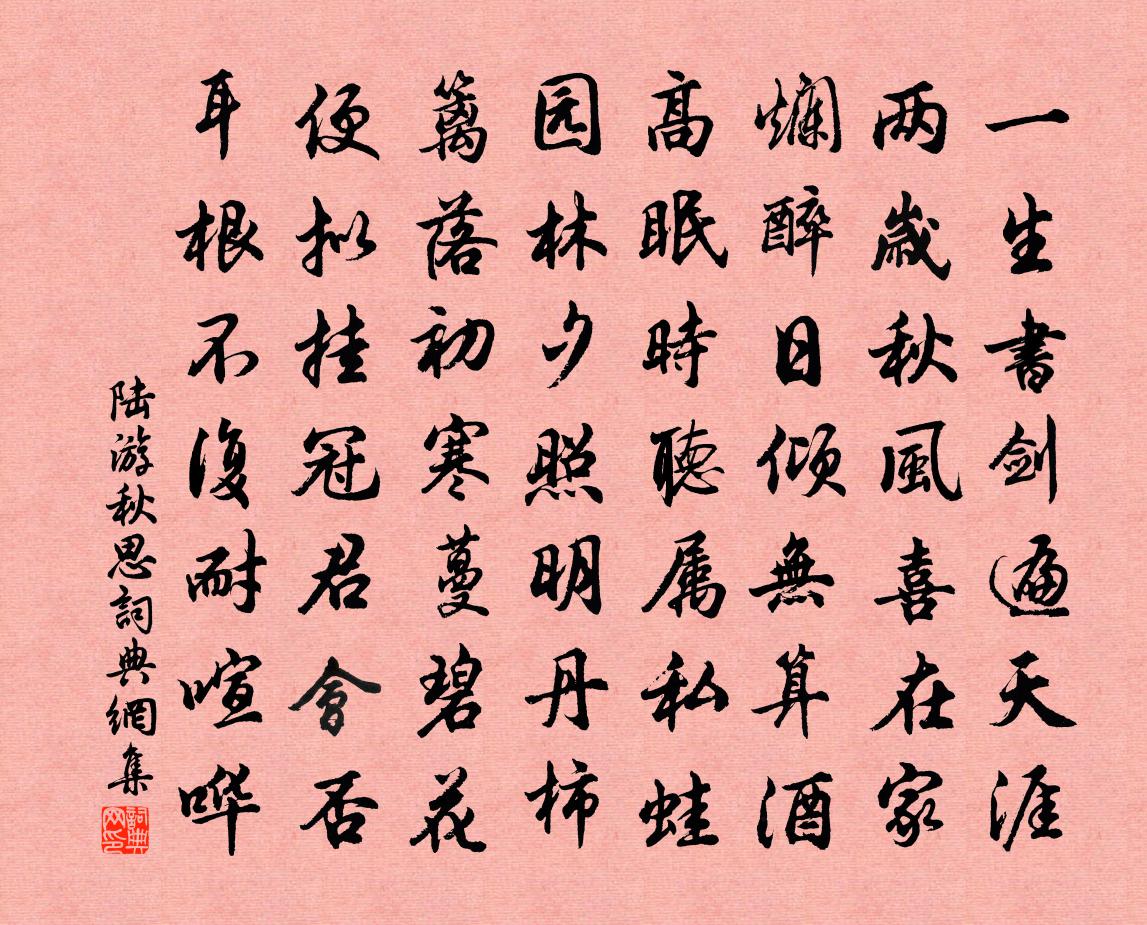 一生書剑遍天涯
两歲秋風喜在家
爛醉日倾無算酒
高眠時聽属私蛙
园林夕照明丹柿
篱落初寒蔓碧花
便拟挂冠君會否
耳根不復耐喧哗
陆游秋思詞典網集
詞典网印